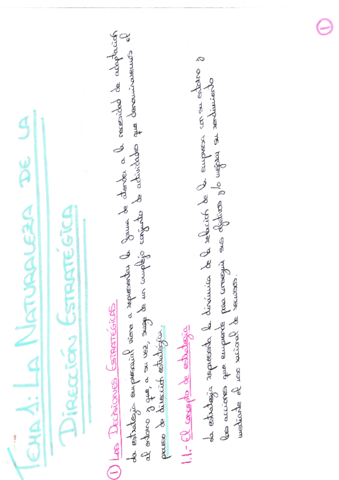 1
TEMA 1: LA NATURALEZA DE LA
DIRECCIÓN ESTRATÉGICA
1 LAS DECISIONES ESTRATÉGICAS
La estrategia empresarial viene a representar la forma de atender a la necesidad de adaptación
al entorno y que, a su vez, surge de un complejo conjunto de actividades que denominaremos el
proceso de dirección estratégica.
1.1.- El concepto de estrategia
La estrategia representa la dinámica de la relación de la empresa con su entorno y
las acciones que emprende para conseguir sus objetivos y/o mejorar su rendimiento
mediante el uso racional de recursos.